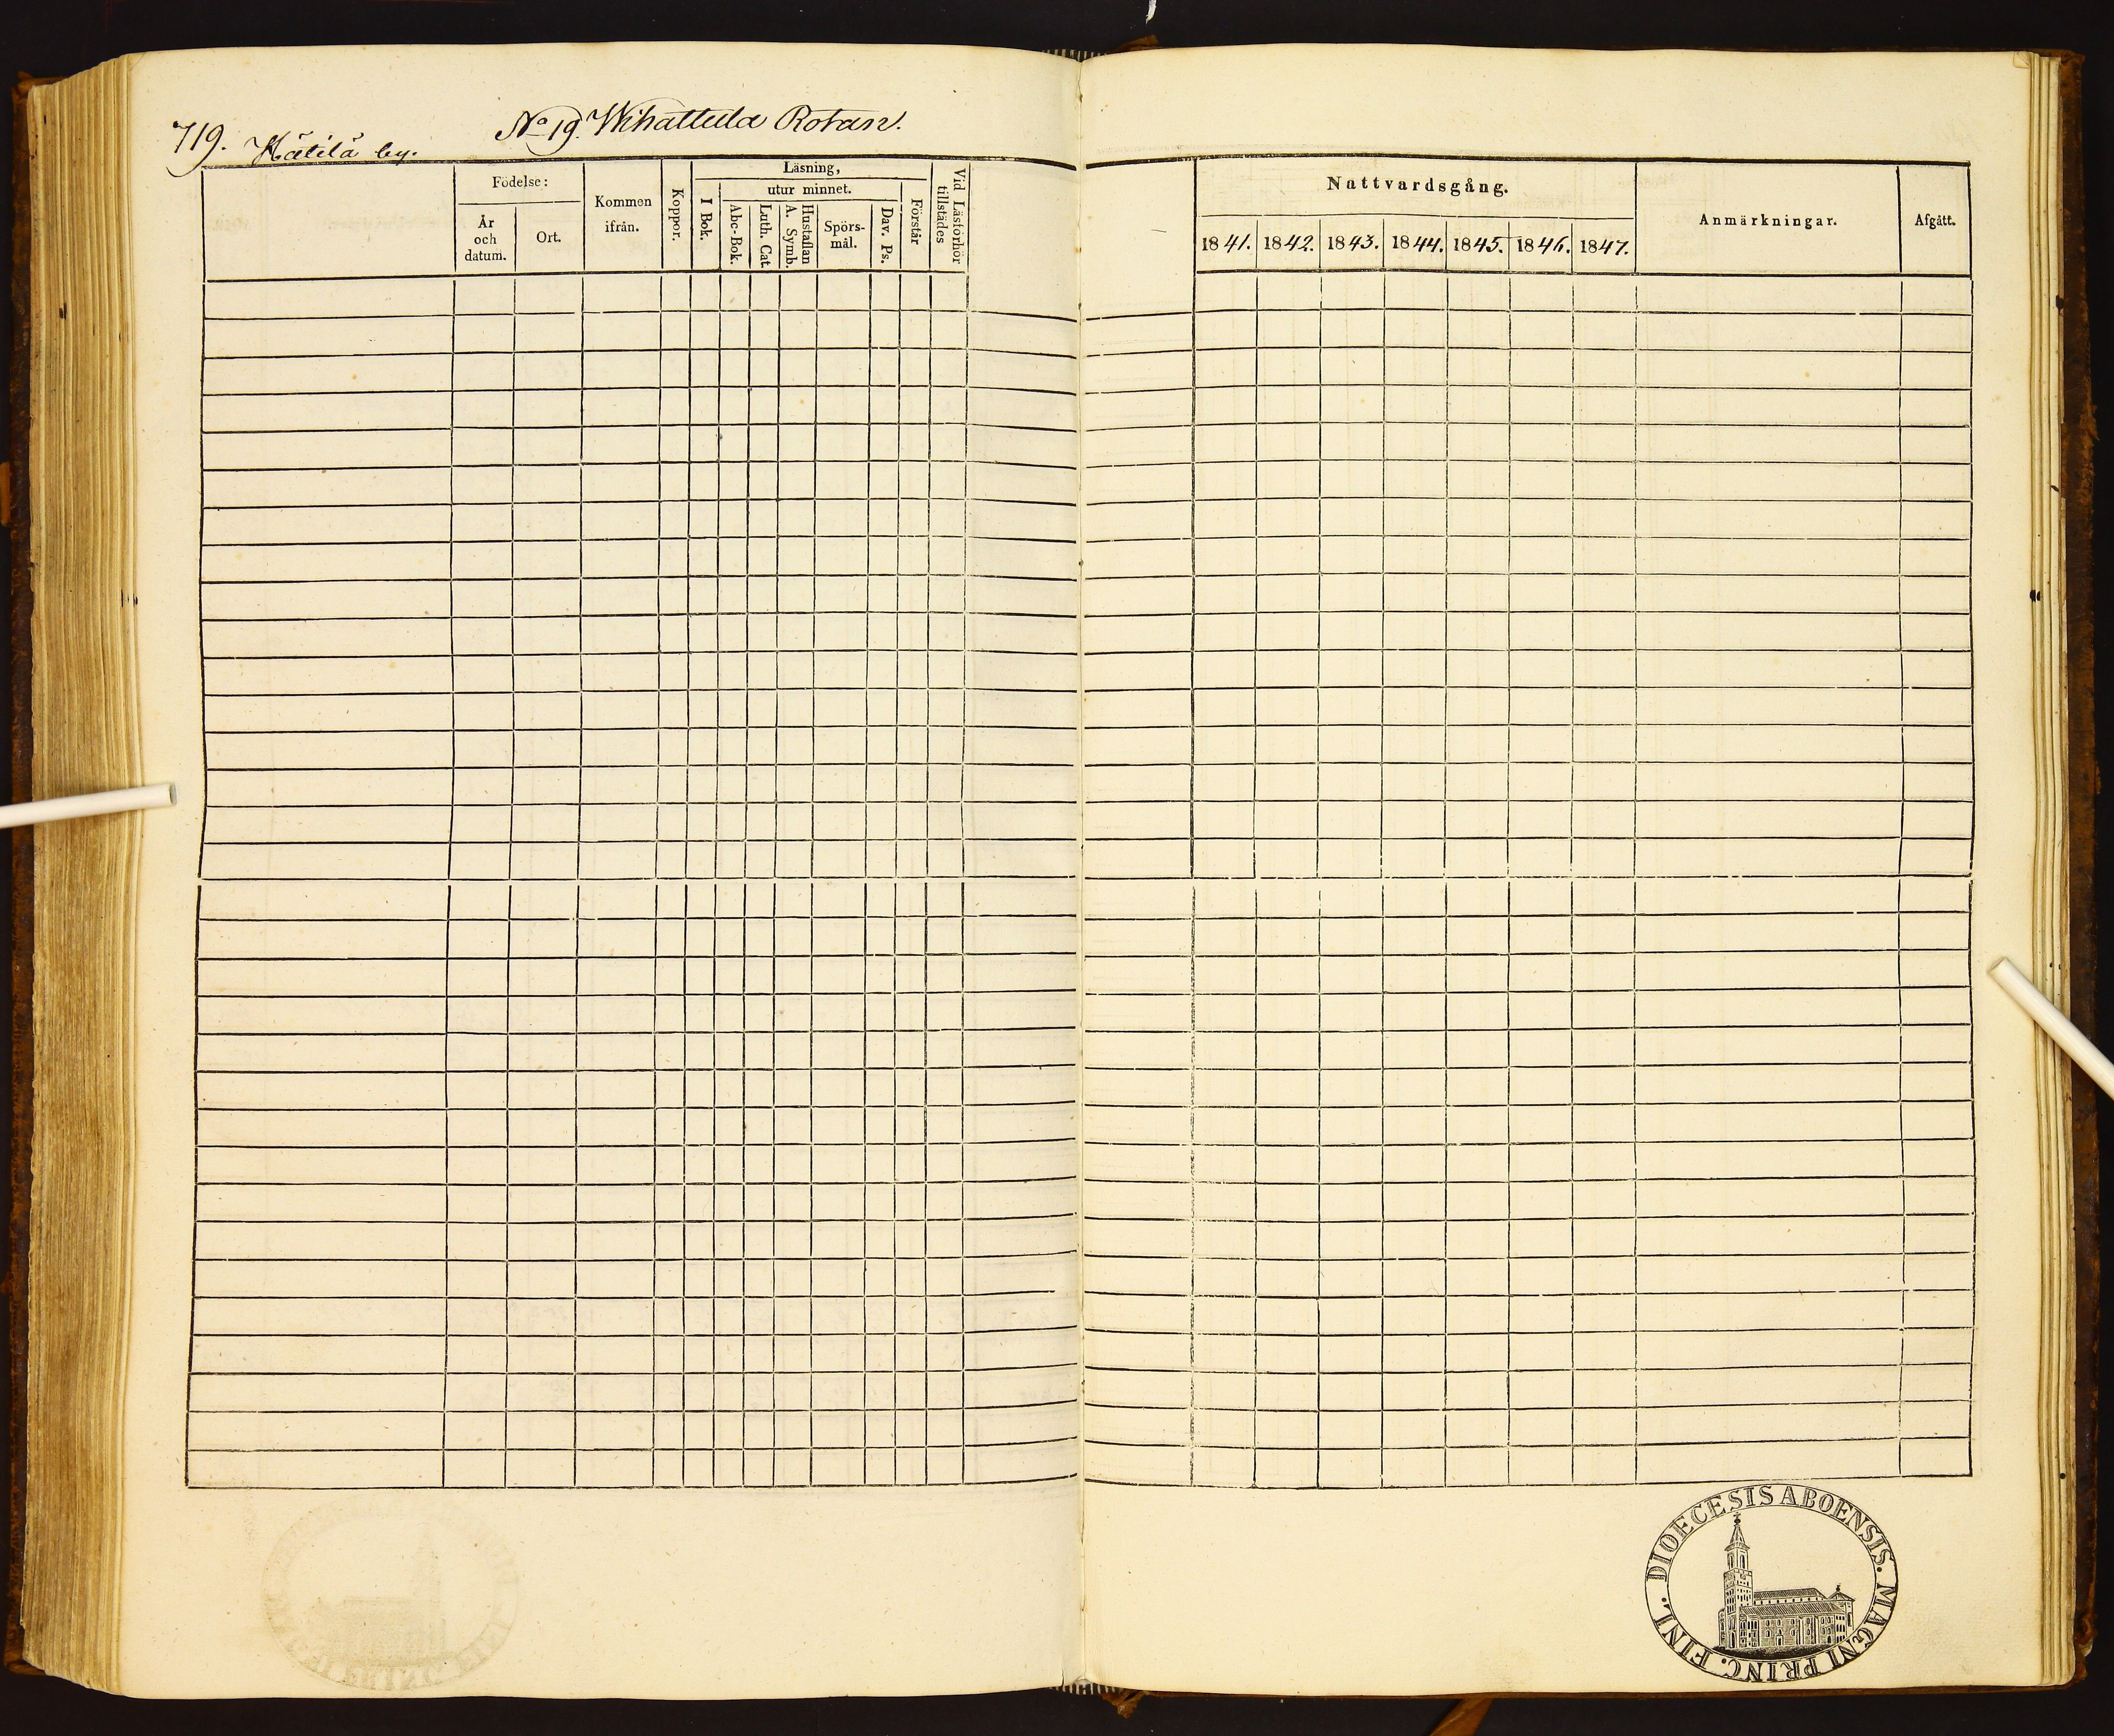 719. Kätilä by. No 19. Wihattula Rotan.
Födelse:
År
och
datum.
Ort.
Kommen
ifrån.
Koppor.
Läsning,
I Bok.
utur minnet.
Abc-Bok.
Luth. Cat
Hustaflan
A. Symb.
Spörs-
mål.
Dav. Ps.
Förstår
Vid Läsförhör
tillstädes
Nattvardsgång.
1841. 1842. 1843. 1844. 1845. 1846. 1847.
Anmärkningar.
Afgått.
DIOECESIS ABOENSIS. MAGNI PRINC. FINL.